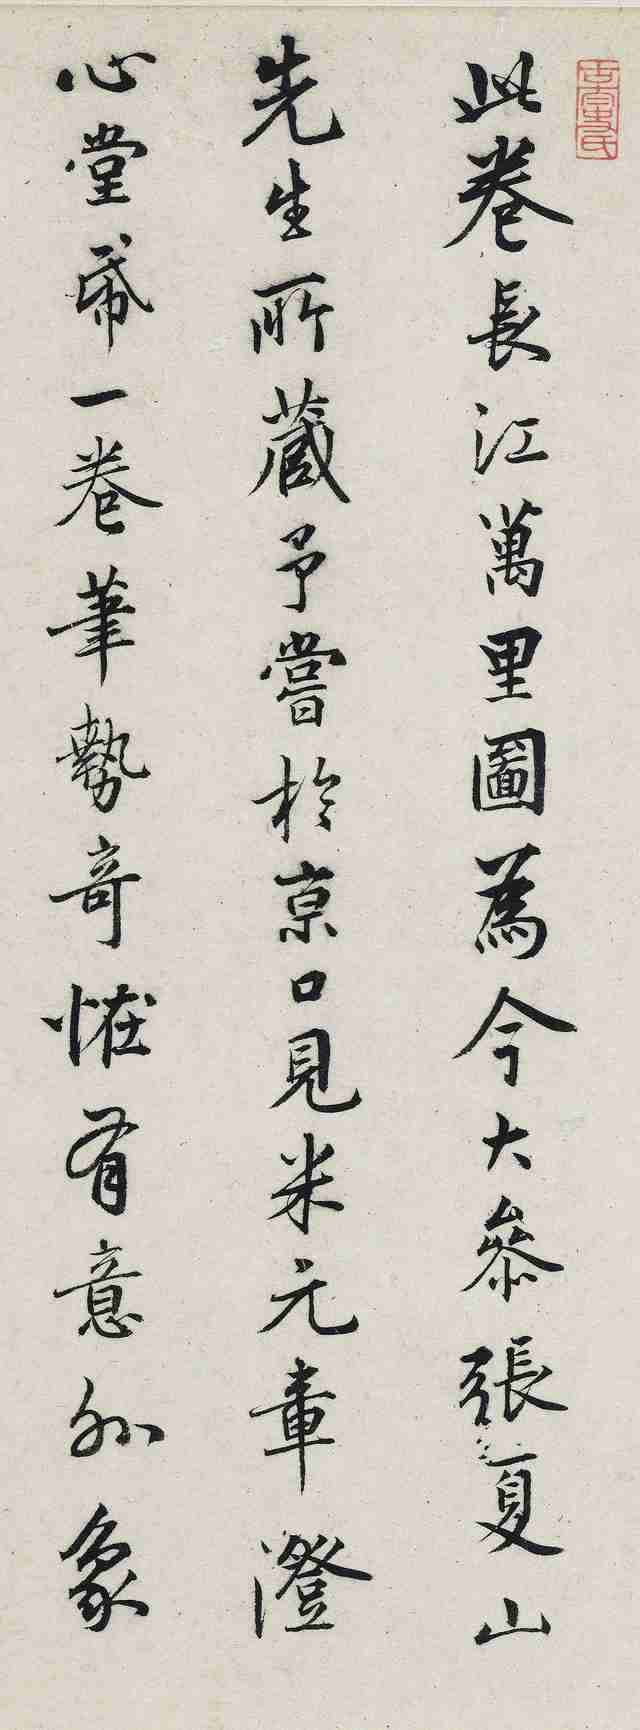 此卷長江萬里圖為今大參張夏山
先生所藏予嘗於京口見米元章澄
心堂帋一卷筆勢奇怪有意外象